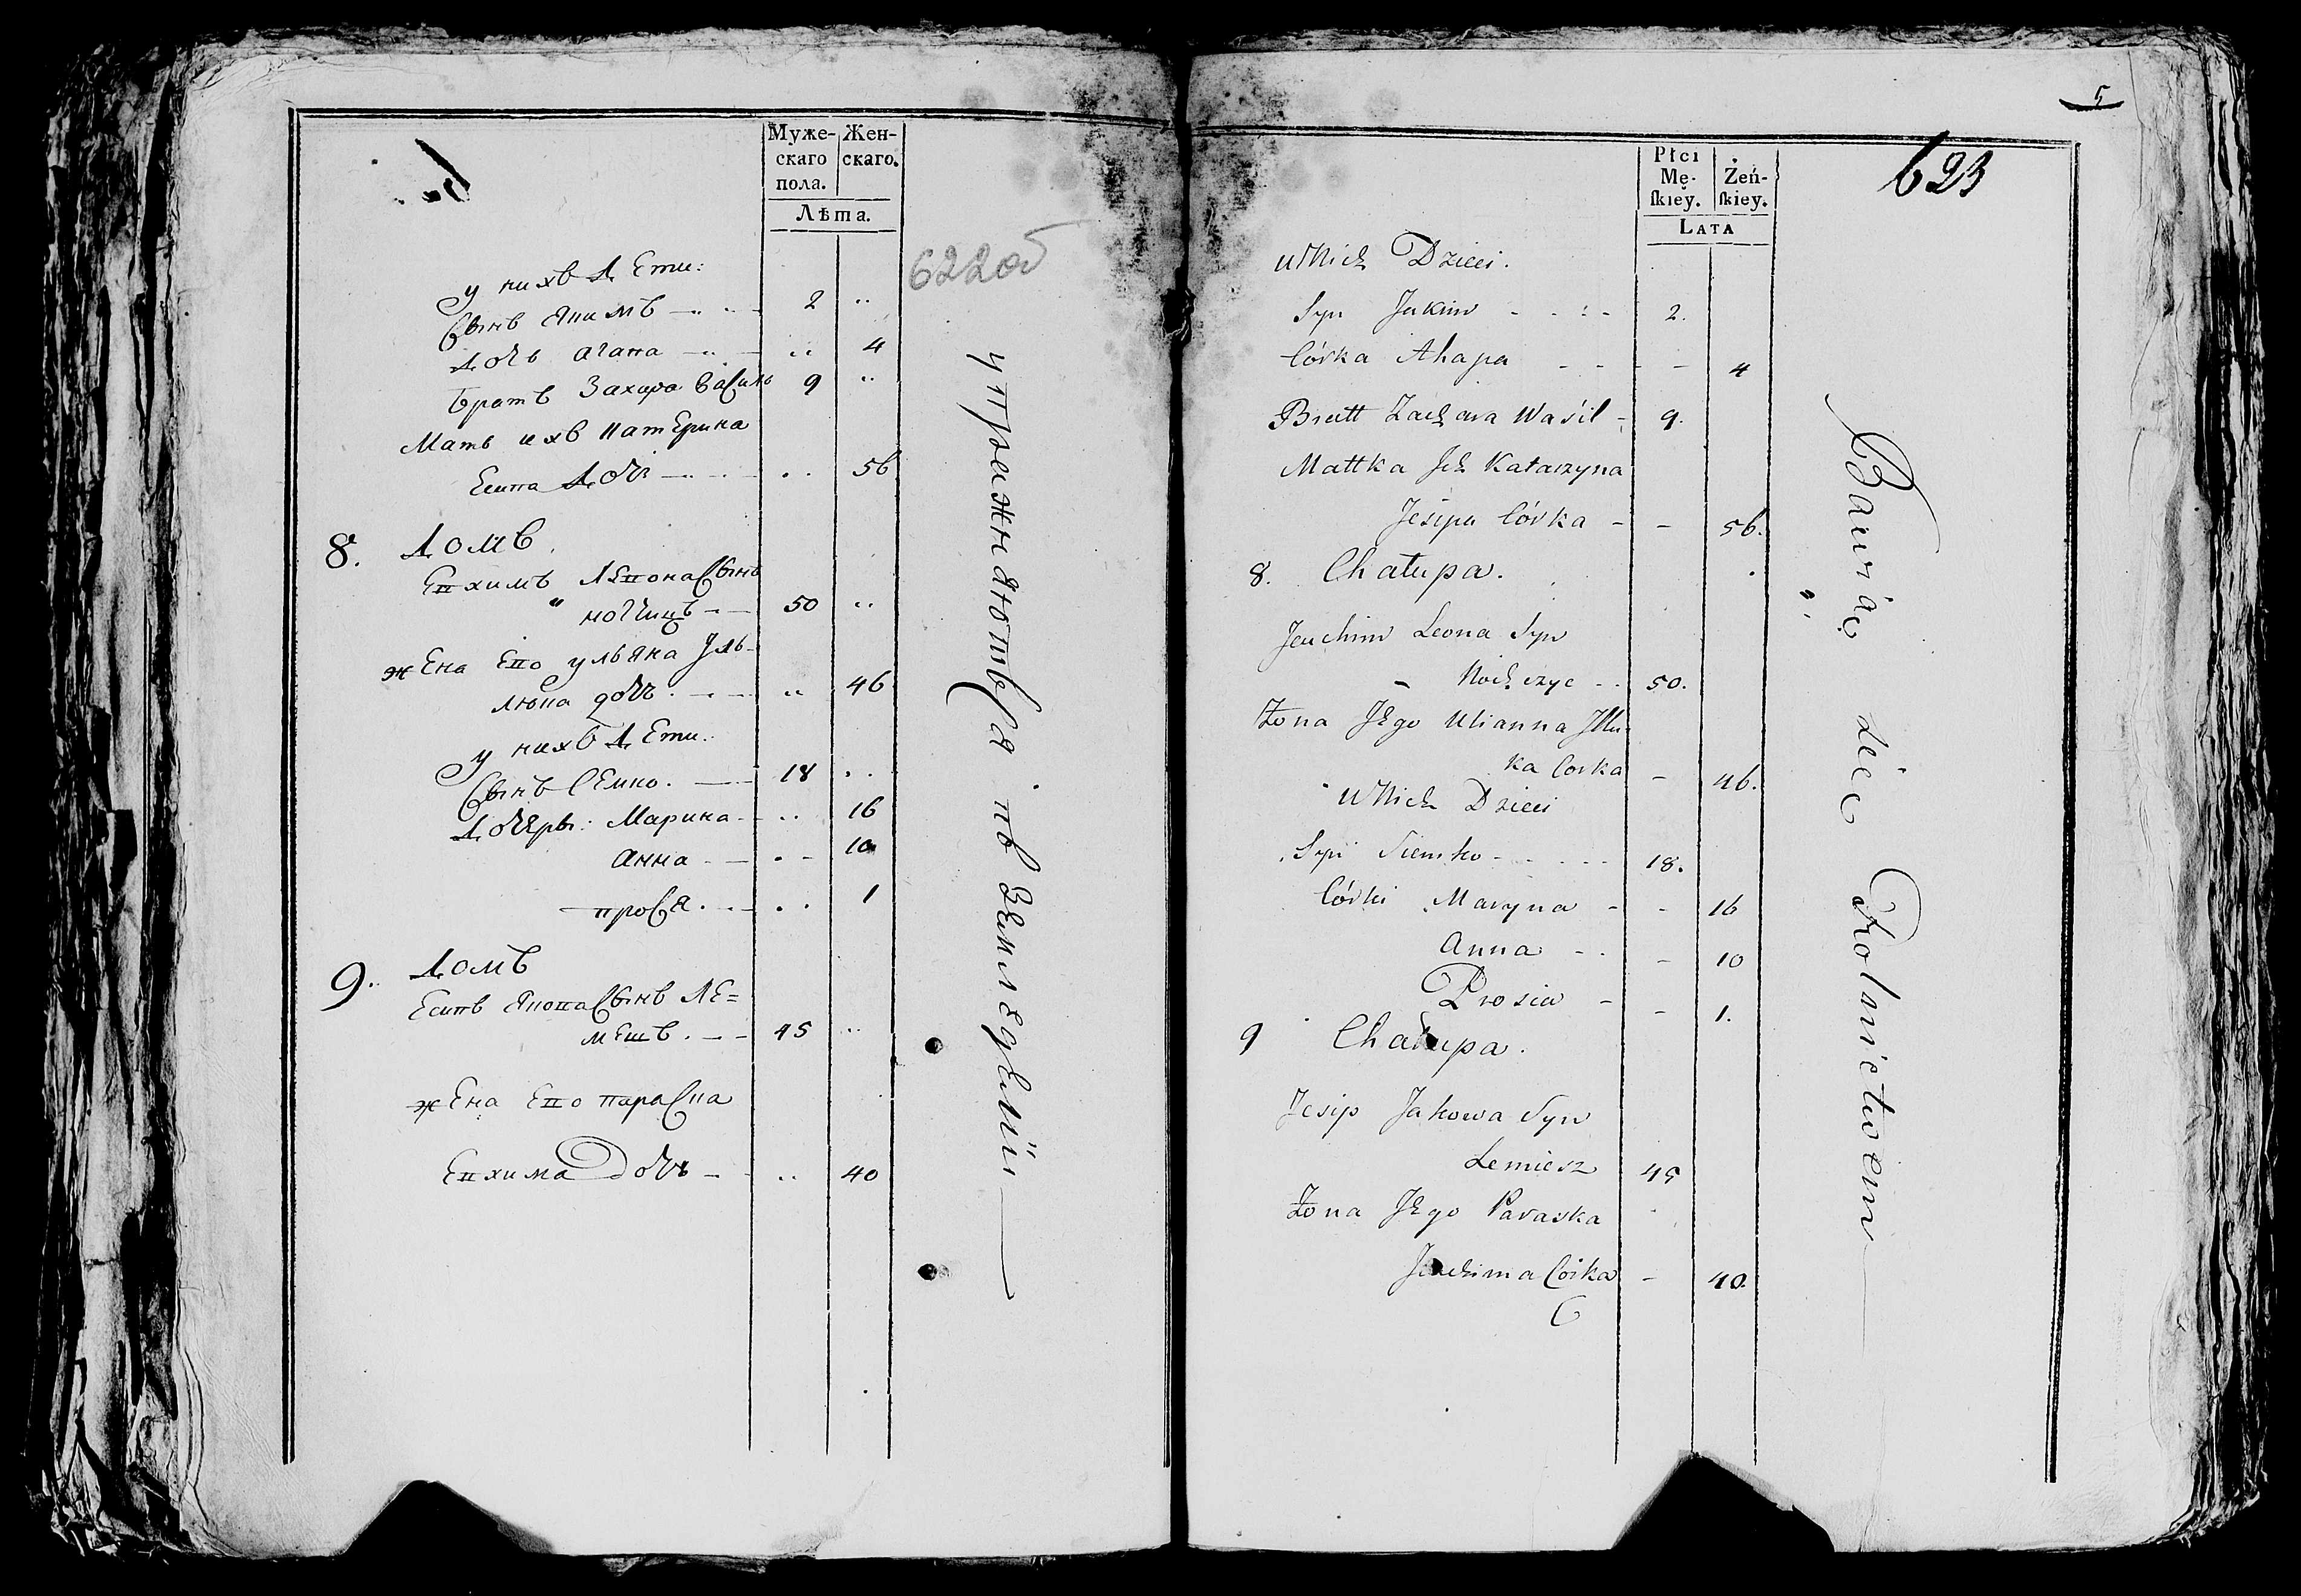 Муже-
скаго
пола.
Жен-
скаго.
Лѣта.
622об
у нихъ дѣти:
Сынъ Якимъ 2 ..
дочъ Агапа .. 4
братъ Захара Василь 9 ..
Мать ихъ Катерина
Есипа дочъ .. 56
8. домъ.
Евхимъ Левона Сынъ
Ногчицъ 50 ..
жена Его Ульяна Иль-
люка дочъ .. 46
у нихъ дѣти:
Сынъ Семко. 18 ..
дочери: Марина .. 16
Анна .. 10
прося .. 1
9. домъ
Есипъ Якова Сынъ Ле=
мешъ. 45 ..
жена Его параска
Евхима Дочъ .. 40
упражняються въ земледѣліи
5
623
Płci
Mę-
ſkiey.
Żeń-
ſkiey.
LATA
U Nich Dzieci.
Syn Jakim 2.
Córka Ahapa 4
Bratt Zachara Waśil 9.
Mattka Ich Katarzyna
Jesipa Córka 56.
8. Chałupa.
Jeuchim Leona Syn
Nochczyc 50.
Żona Jego Ulianna Jllu-
ka Corka 46.
U Nich Dzieci
Syn Siemko 18.
Córki Maryna 16
Anna 10
Prosia 1.
9 Chałupa.
Jesip Jakowa Syn
Lemiesz 45
Żona Jego Paraska
Jeuchima Córka 40.
Bawiąc się Rolnictwem